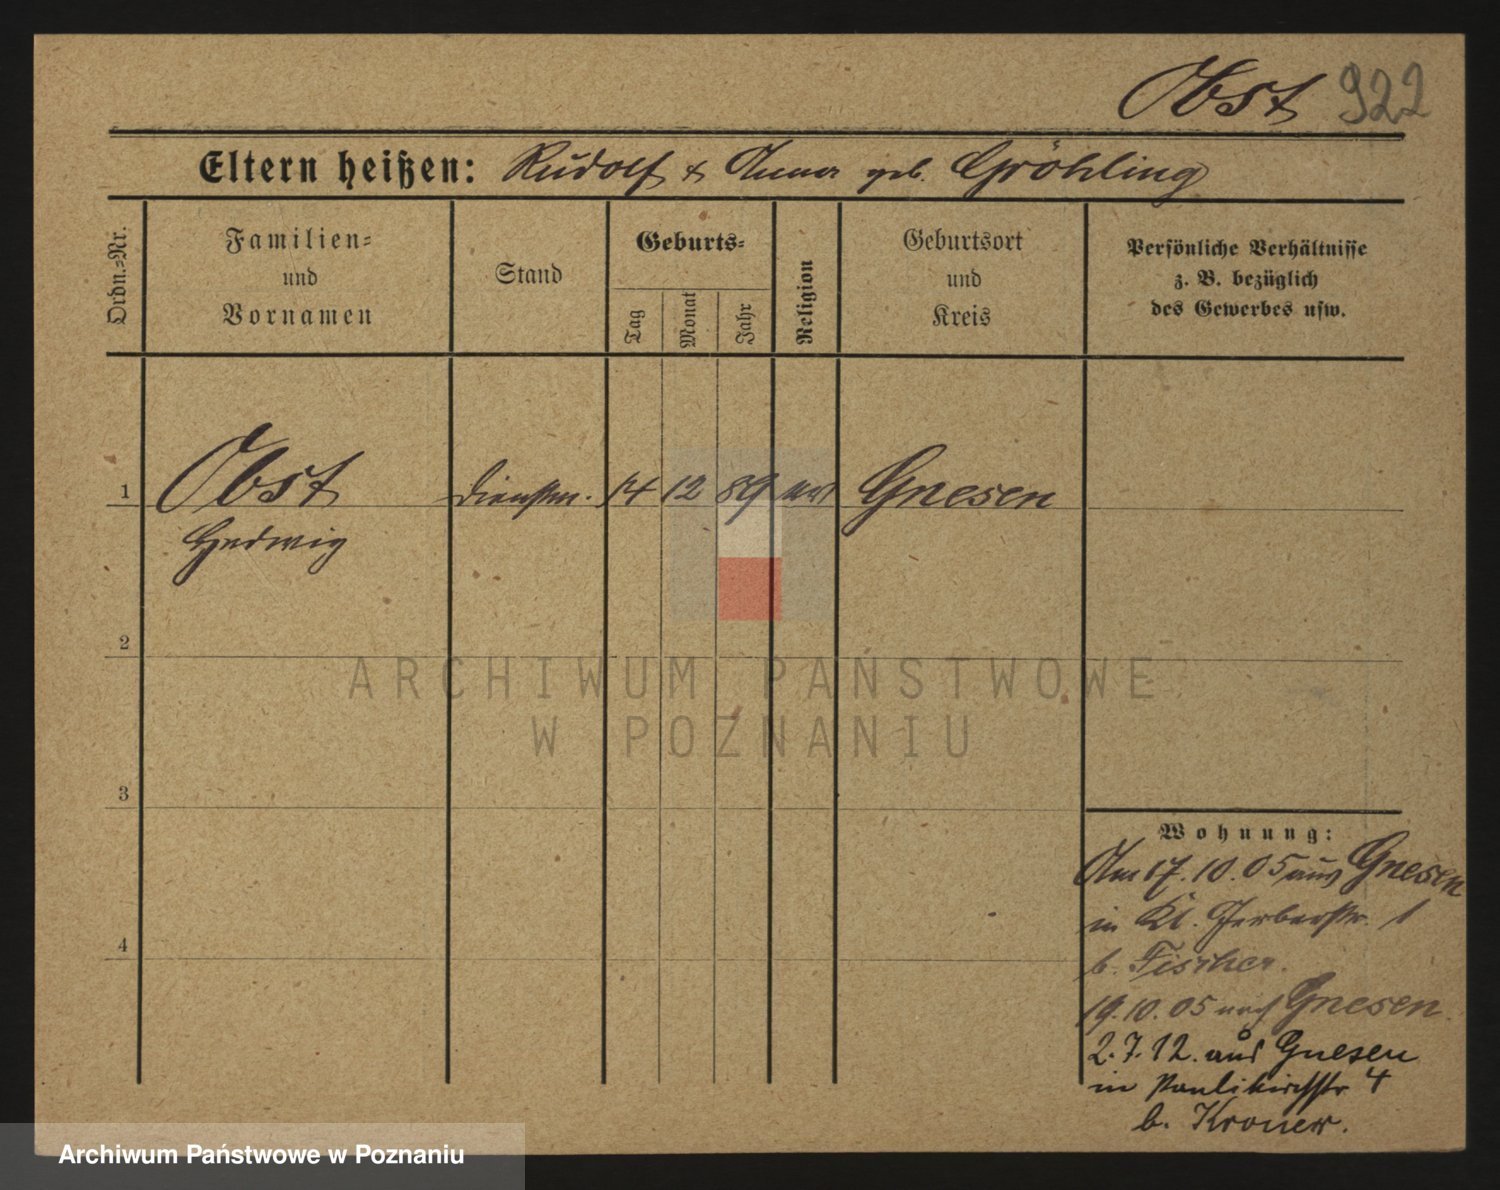 Obst 922
Eltern heißen: Rudolf & Anna geb. Gröhling
Ordn.=Nr.
Familien=
und
Vornamen
Stand
Geburts=
Tag
Monat
Jahr
Religion
Geburtsort
und
Kreis
Persönliche Verhältnisse
z. B. bezüglich
des Gewerbes usw.
1 Obst Dienstm. 14 12 89 Gnesen
Hedwig
2
3
4
Wohnung:
Am 17.10.05 aus Gnesen
in Kl. Gerberstr. 1
b. Fischer.
19.10.05 nach Gnesen.
2.7.12. aus Gnesen
in Paulikirchstr 4
b. Kroner.
ARCHIWUM PAŃSTWOWE
W POZNANIU
Archiwum Państwowe w Poznaniu